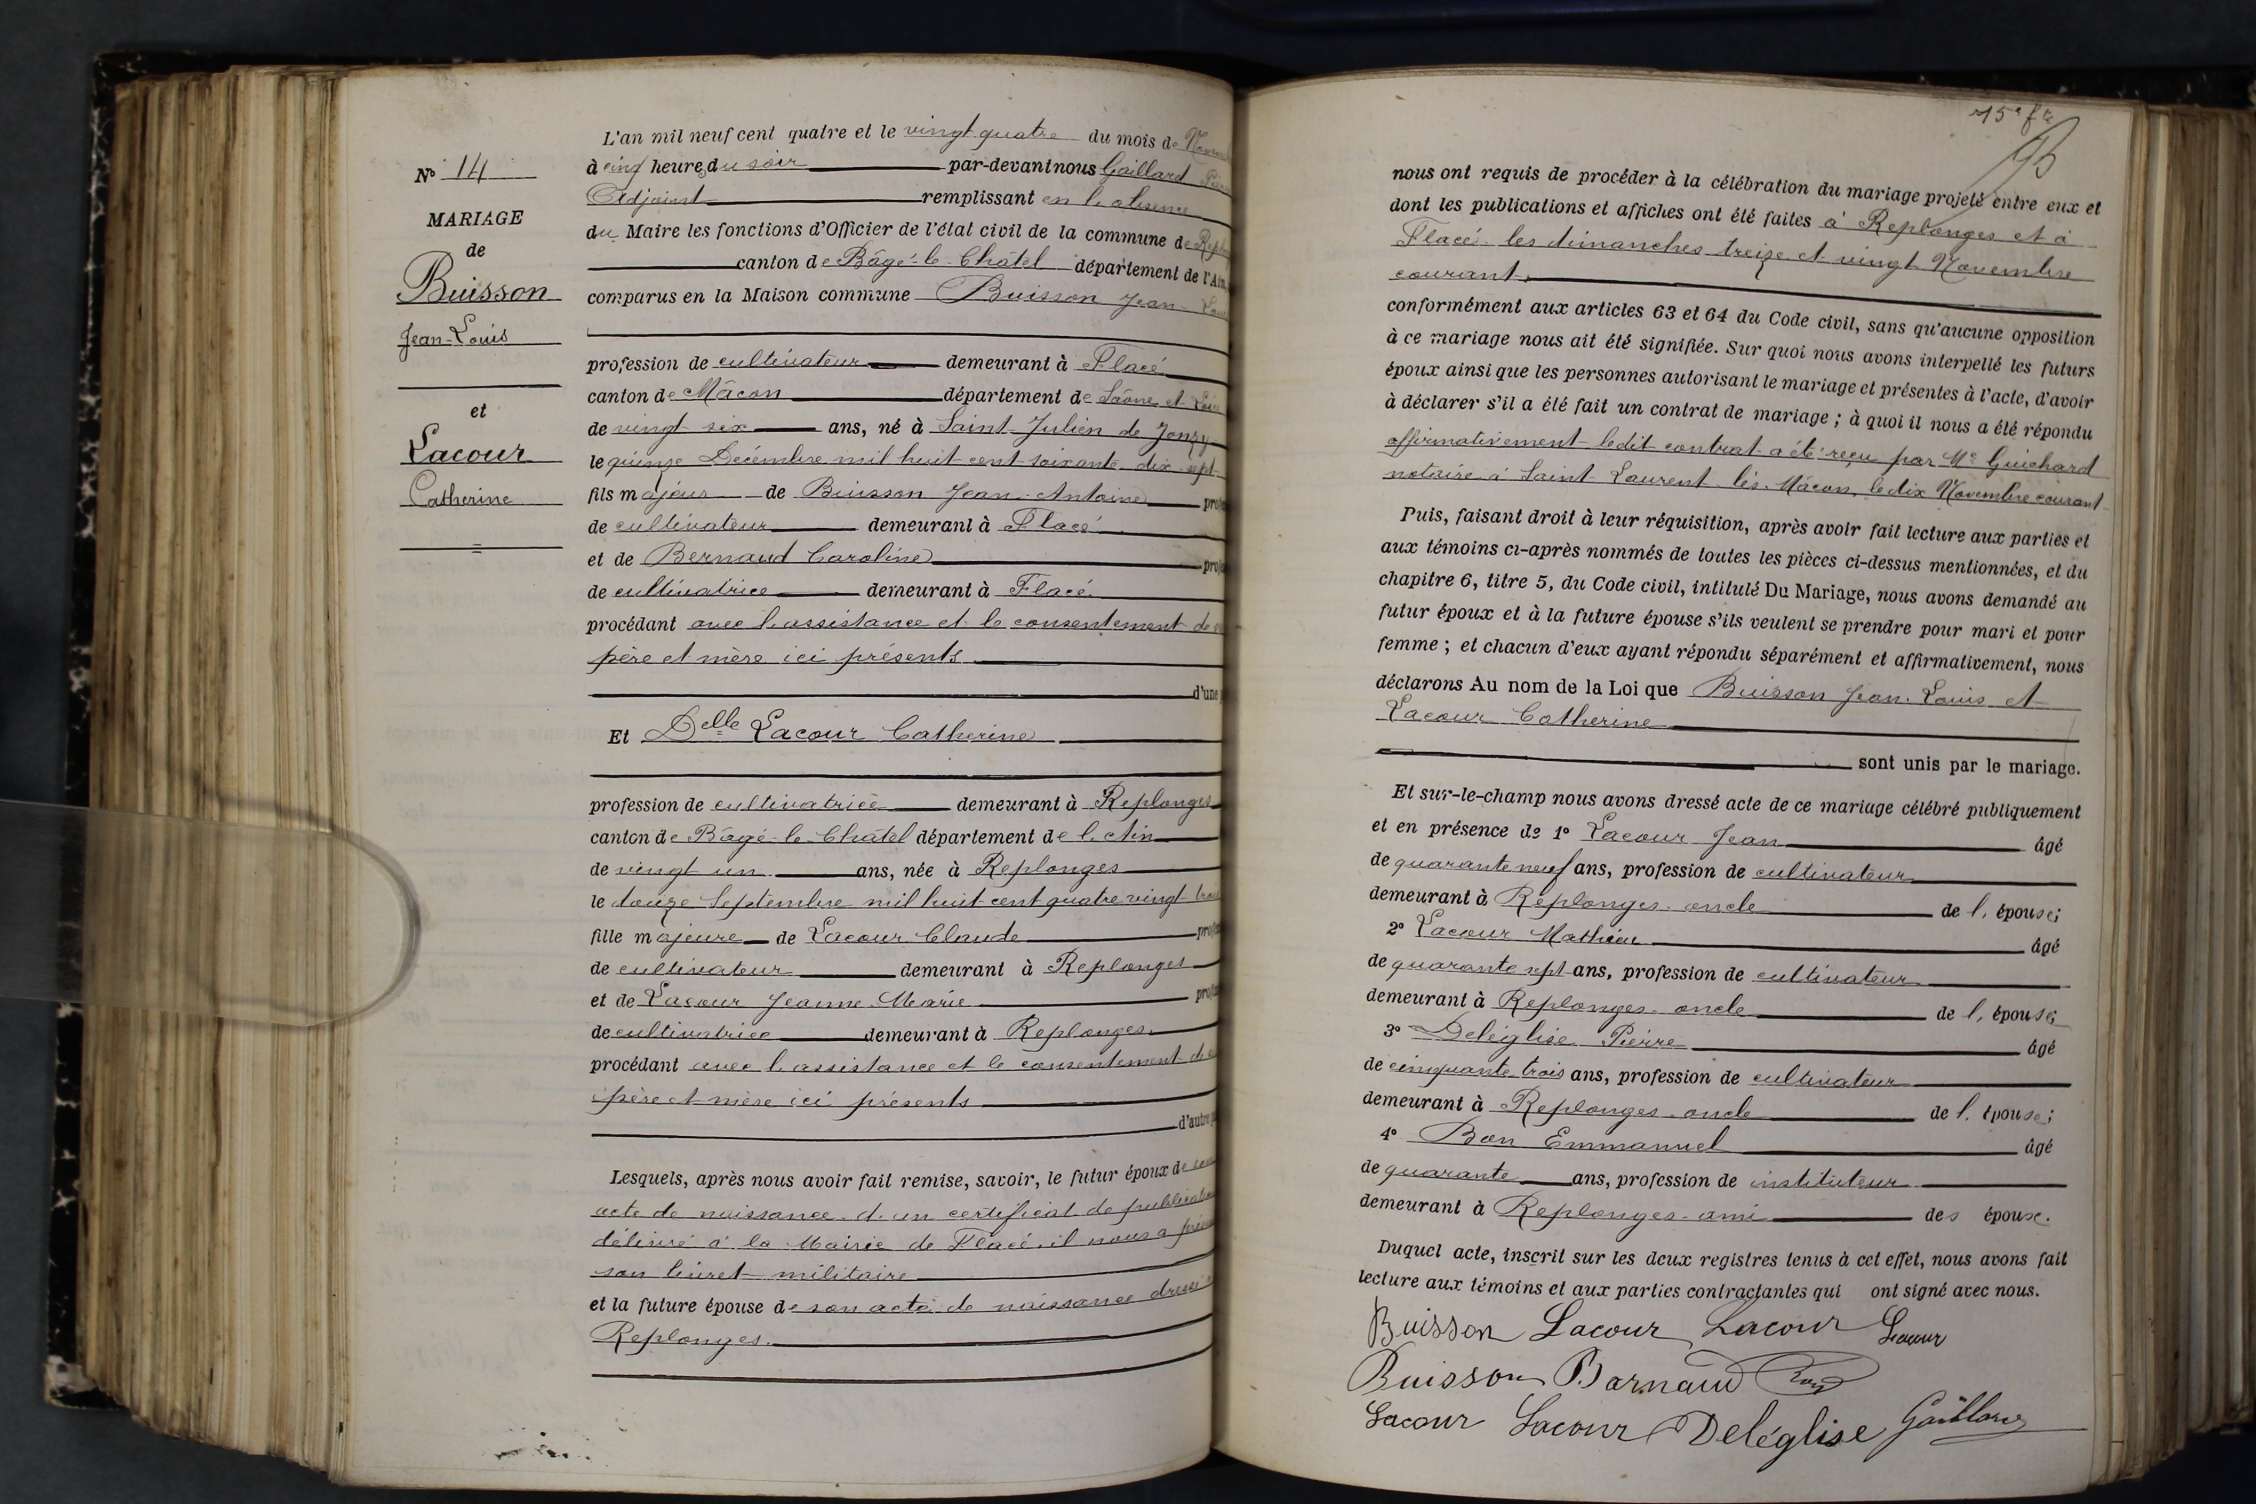 N° 14
MARIAGE
de
Buisson
Jean-Louis
et
Lacour
Catherine
L'an mil neuf cent quatre et le vingt quatre du mois de
à cinq heures du soir par-devant nous Gaillard
Adjoint remplissant en l'absence
du Maire les fonctions d'Officier de l'état civil de la commune de
canton de Bâgé-le-Châtel département de l'Ain
comparus en la Maison commune Buisson Jean-
profession de cultivateur demeurant à Flacé
canton de Mâcon département de Saône et
de vingt six ans, né à Saint Julien de Jonzy
le quinze Décembre mil huit cent soixante-dix-sept
fils majeur de Buisson Jean-Antoine
de cultivateur demeurant à Flacé
et de Bernaud Caroline
de cultivatrice demeurant à Flacé
procédant avec l'assistance et le consentement de
père et mère ici présents
d'une
Et Delle Lacour Catherine
profession de cultivatrice demeurant à Replonges
canton de Bâgé-le-Châtel département de l'Ain
de vingt un ans, née à Replonges
le douze Septembre mil huit cent quatre vingt
fille majeure de Lacour Claude
de cultivateur demeurant à Replonges
et de Lacour Jeanne-Marie
de cultivatrice demeurant à Replonges
procédant avec l'assistance et le consentement de
père et mère ici présents
d'autre
Lesquels, après nous avoir fait remise, savoir, le futur époux de son
acte de naissance d'un certificat de
délivré à la Mairie de Flacé, il nous a
son livret militaire
et la future épouse de son acte de naissance
Replonges.
nous ont requis de procéder à la célébration du mariage projeté entre eux et
dont les publications et affiches ont été faites à Replonges et à
Flacé les dimanches treize et vingt Novembre
courant,
conformément aux articles 63 et 64 du Code civil, sans qu'aucune opposition
à ce mariage nous ait été signifiée. Sur quoi nous avons interpellé les futurs
époux ainsi que les personnes autorisant le mariage et présentes à l'acte, d'avoir
à déclarer s'il a été fait un contrat de mariage ; à quoi il nous a été répondu
affirmativement ledit contrat a été reçu par Me Guichard
notaire à Saint-Laurent-lès-Mâcon, le dix Novembre courant
Puis, faisant droit à leur réquisition, après avoir fait lecture aux parties et
aux témoins ci-après nommés de toutes les pièces ci-dessus mentionnées, et du
chapitre 6, titre 5, du Code civil, intitulé Du Mariage, nous avons demandé au
futur époux et à la future épouse s'ils veulent se prendre pour mari et pour
femme ; et chacun d'eux ayant répondu séparément et affirmativement, nous
déclarons Au nom de la Loi que Buisson Jean-Louis et
Lacour Catherine
sont unis par le mariage.
Et sur-le-champ nous avons dressé acte de ce mariage célébré publiquement
et en présence de 1° Lacour Jean âgé
de quarante neuf ans, profession de cultivateur
demeurant à Replonges oncle de l'épouse;
2° Lacour Mathieu âgé
de quarante sept ans, profession de cultivateur
demeurant à Replonges oncle de l'épouse;
3° Deléglise Pierre âgé
de cinquante trois ans, profession de cultivateur
demeurant à Replonges oncle de l'épouse;
4° Bon Emmanuel âgé
de quarante ans, profession de instituteur
demeurant à Replonges ami des époux.
Duquel acte, inscrit sur les deux registres tenus à cet effet, nous avons fait
lecture aux témoins et aux parties contractantes qui ont signé avec nous.
Buisson Lacour Lacour Lacour
Buisson Barnaud Bon
Lacour Lacour Deléglise Gaillard